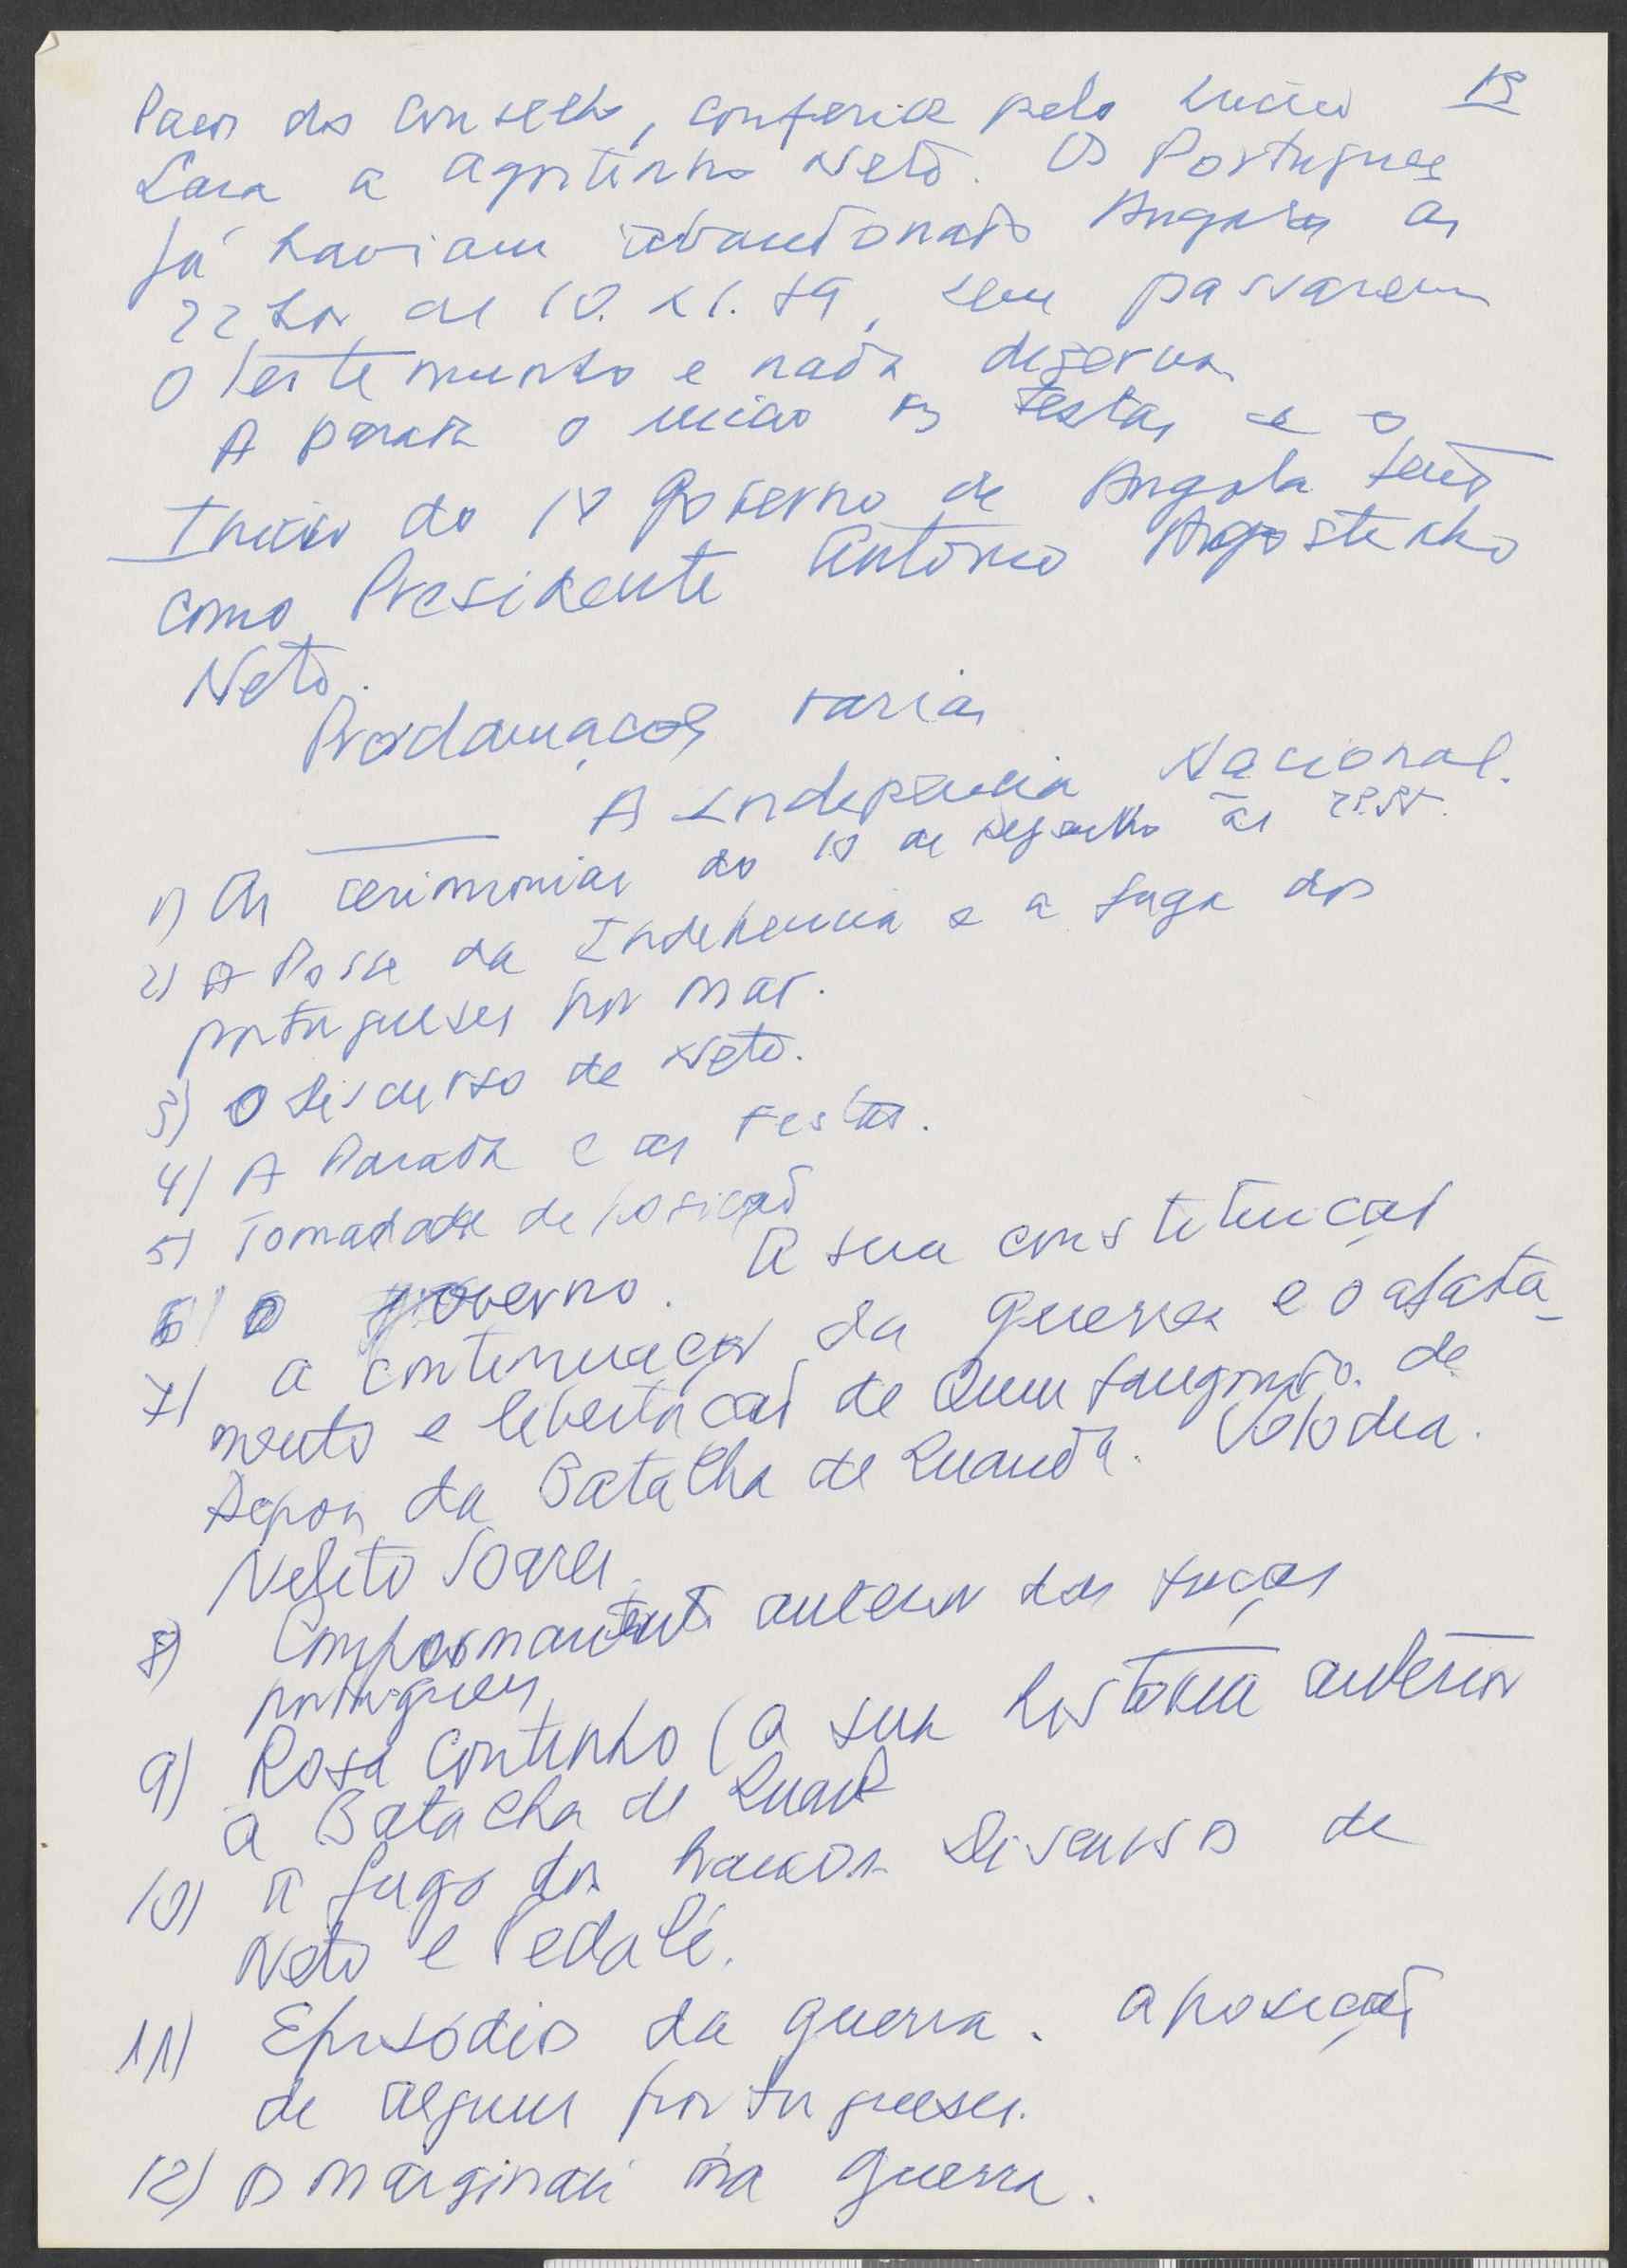 13
Paços do Conselho, conferida pelo Lúcio
Lara a Agostinho Neto. Os Portugues
Já haviam abandonado Angola as
22 hrs de 10. XI. , sem passarem
o testemunho e nada
A parada o inicio as festas e o
Inicio do 1º Governo de Angola tendo
como Presidente António Agostinho
Neto.
Proclamações varias
A Indepencia Nacional.
1) As cerimonias do 10 de às
2) A Posse da Indepencia e a fuga dos
portugueses por mar.
3) O discurso de Neto.
4) A Parada e as Festas.
5) Tomada de posição
6) O governo. A sua constituição
7) A continuação da guerra e o afasta-
mento e libertação de Quinfangondo. de
Depois da Batalha de Luanda. Valodia.
Nelito Soares
8) anterior das forças
portugueses
9) Rosa Coutinho (a sua historia anterior
a Batalha de
10) A fuga dos Discursos de
Neto e Pedalé.
11) Episódios da guerra. A posição
de alguns portugueses.
12) Os marginais na guerra.